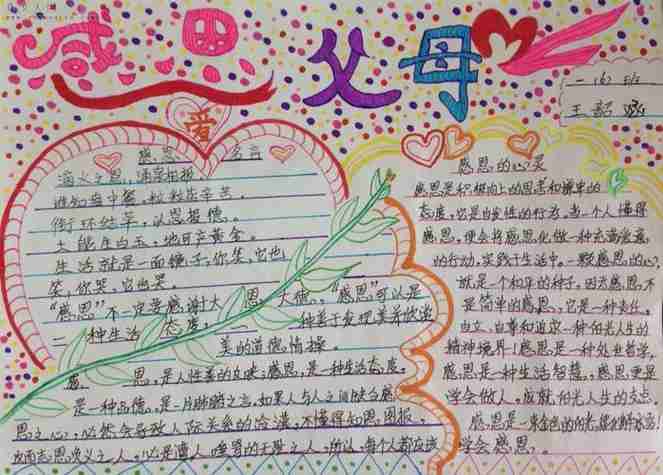 感恩父母
一(6)班
王韶
爱
感恩 名言
滴水之恩,涌泉相报
谁知盘中餐,粒粒皆辛苦。
衔环结草,以恩报德。
土能生白玉,地可产黄金。
生活就是一面镜子,你笑,它也
笑,你哭,它也哭。
"感恩"不一定要感谢大恩大德,"感恩"可以是
一种生活态度,一种善于发现美并欣赏
美的道德情操。
感恩,是人性善的反映;感恩,是一种生活态度,
是一种品德,是一片肺腑之言。如果人与人之间缺乏感
恩之心,必然会导致人际关系的冷漠,不懂得知恩图报,
反而忘恩负义之人,必是遭人唾骂的无耻之人。所以,每个人都应该
感恩的心灵
感恩是积极向上的思考和谦卑的
态度,它是自发性的行为。当一个人懂得
感恩,便会将感恩化做一种充满爱意
的行动,实践于生活中。一颗感恩的心,
就是一个和平的种子,因为感恩不
是简单的报恩,它是一种责任、
自立、自尊和追求一种阳光人生的
精神境界!感恩是一种处世哲学,
感恩是一种生活智慧,感恩更是
学会做人,成就阳光人生的支点。
感恩是一束金色的阳光,能化解冰雪!
学会感恩。